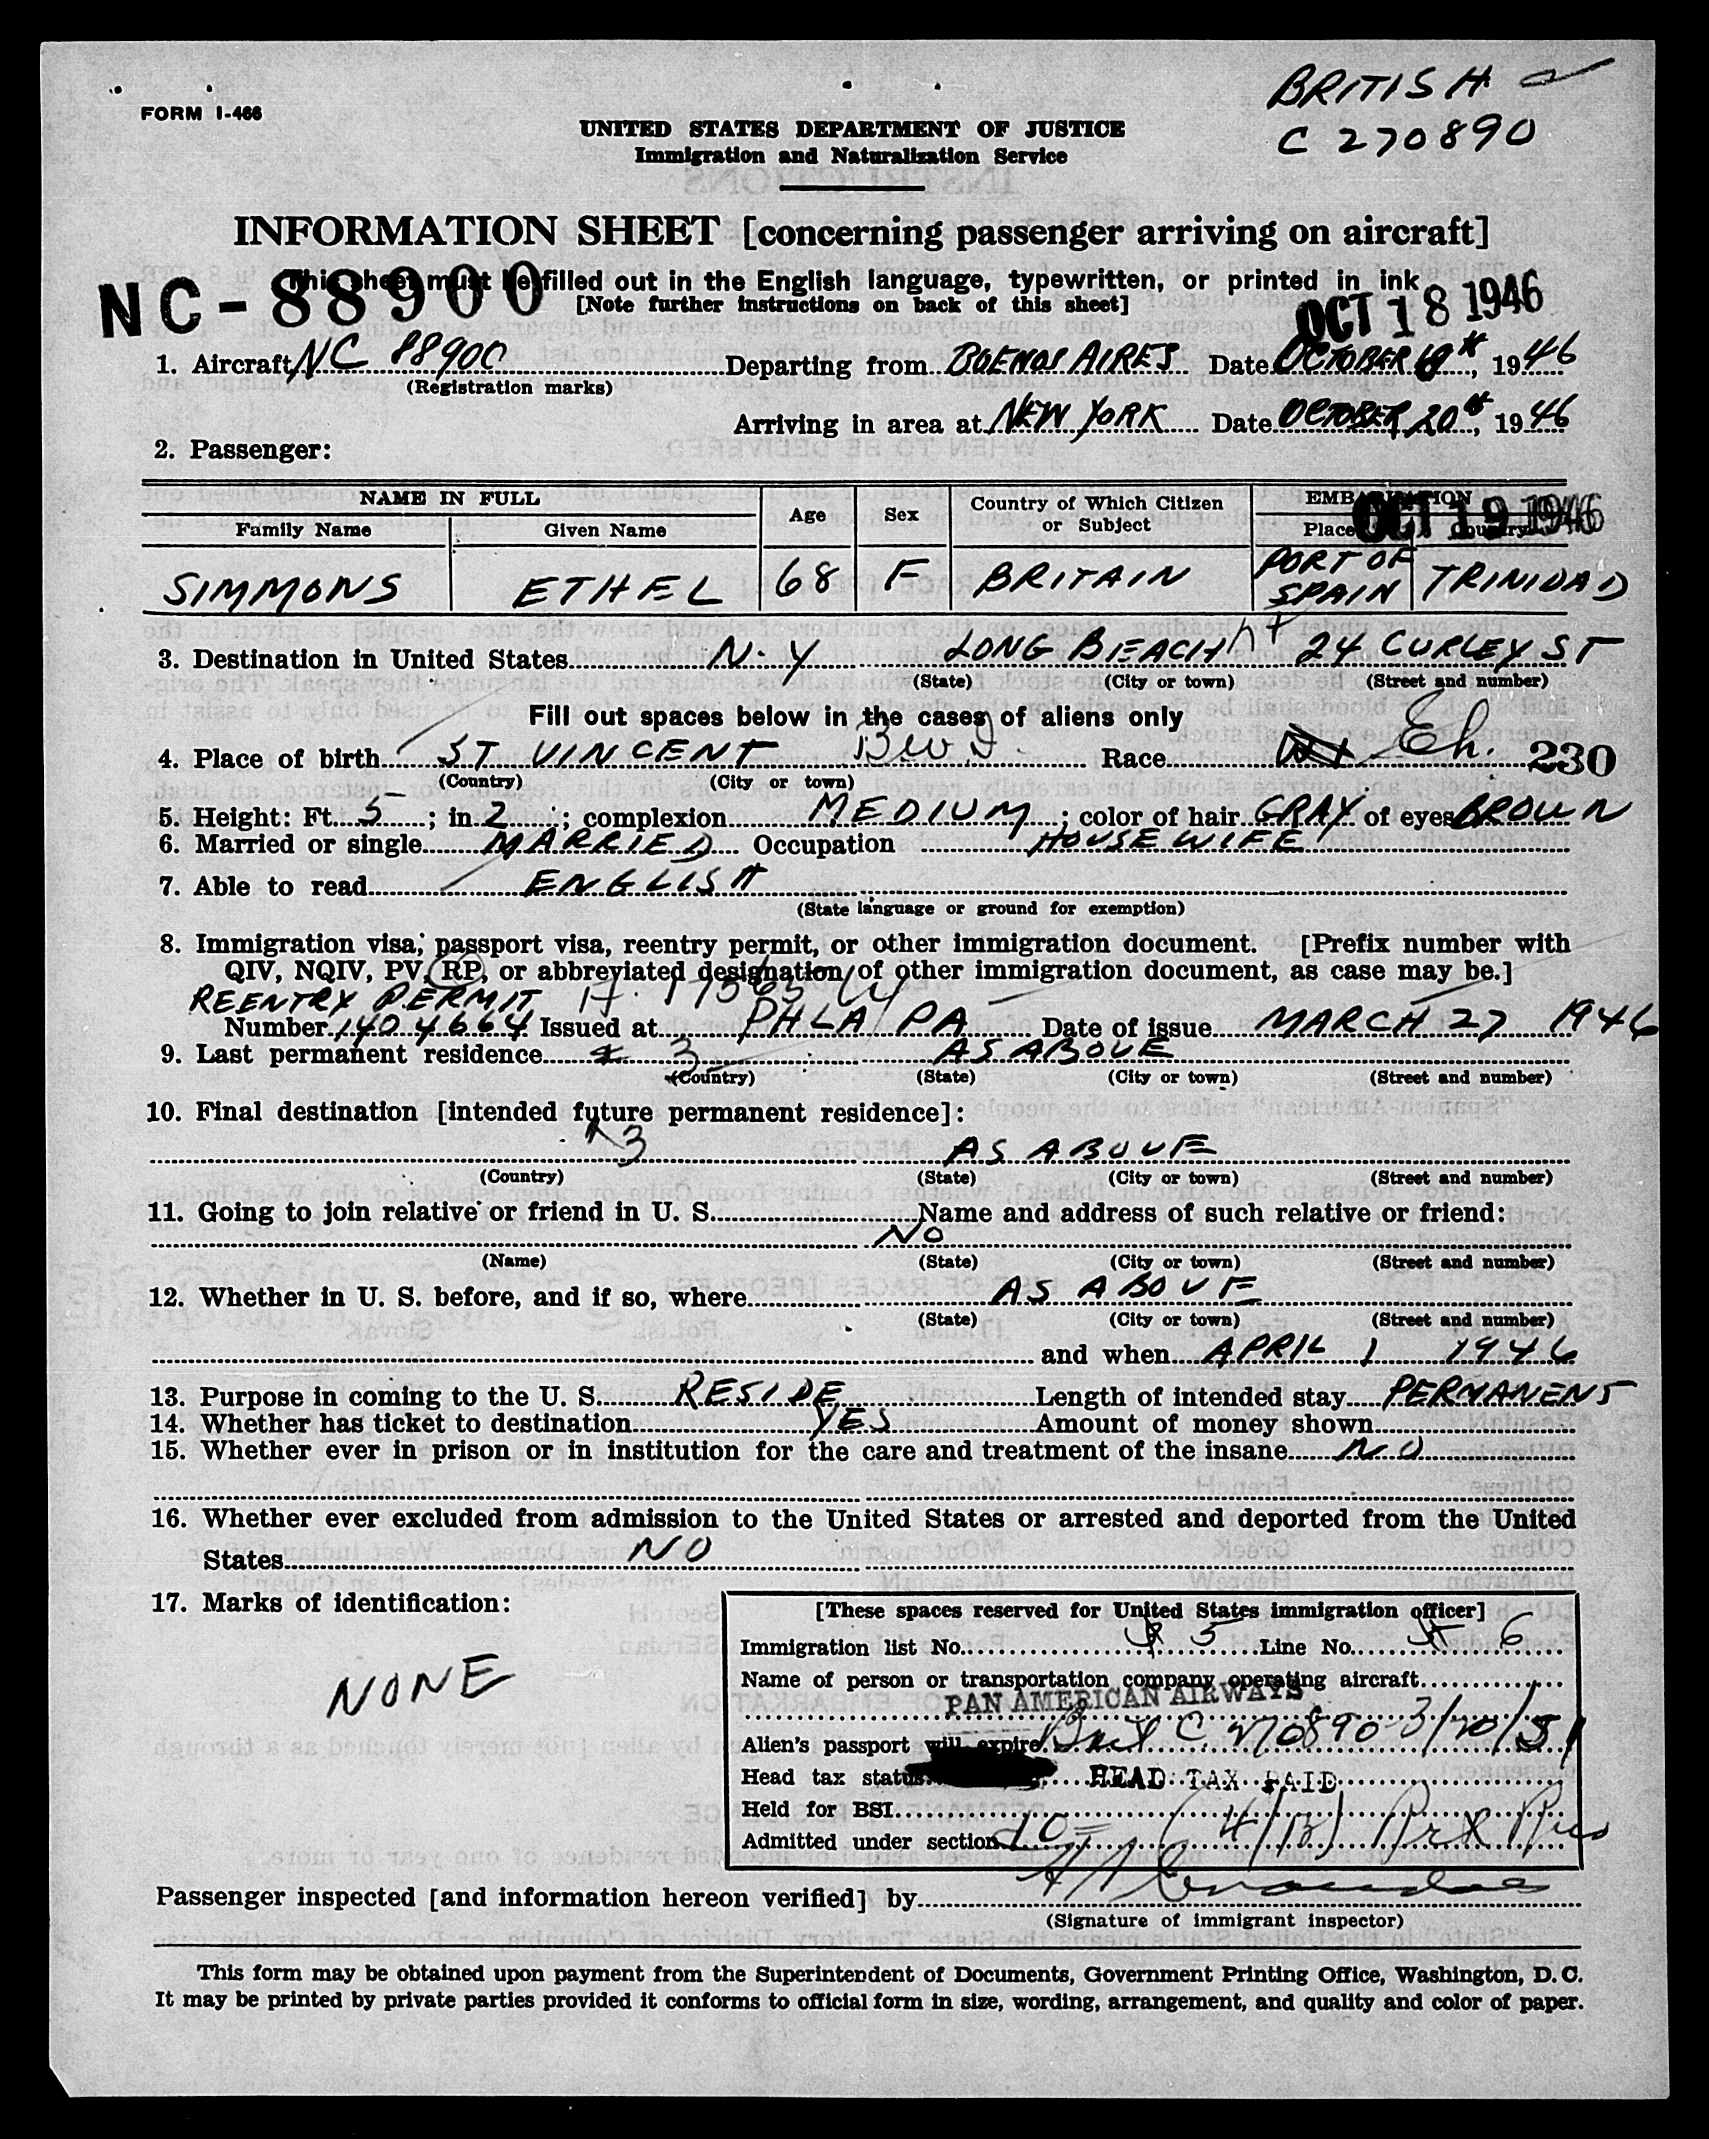 FORM I-466
BRITISH
C 270890
UNITED STATES DEPARTMENT OF JUSTICE
Immigration and Naturalization Service
INFORMATION SHEET [concerning passenger arriving on aircraft]
This sheet must be filled out in the English language, typewritten, or printed in ink
[Note further instructions on back of this sheet]
NC-88900
OCT 18 1946
1. Aircraft NC 88900 Departing from BUENOS AIRES Date OCTOBER 1946
(Registration marks)
Arriving in area at NEW YORK Date OCTOBER 20th, 1946
2. Passenger:
NAME IN FULL Age Sex Country of Which Citizen or Subject EMBARKATION
Family Name Given Name Place Country
OCT 19 1946
SIMMONS ETHEL 68 F BRITAIN PORT OF SPAIN TRINIDAD
3. Destination in United States N.Y LONG BEACH 24 CURLEY ST
(State) (City or town) (Street and number)
Fill out spaces below in the cases of aliens only
4. Place of birth ST VINCENT BWI. Race 230
(Country) (City or town)
5. Height: Ft. 5; in. 2; complexion MEDIUM; color of hair GRAY of eyes BROWN
6. Married or single MARRIED Occupation HOUSEWIFE
7. Able to read ENGLISH
(State language or ground for exemption)
8. Immigration visa, passport visa, reentry permit, or other immigration document. [Prefix number with
QIV, NQIV, PV, RP, or abbreviated designation of other immigration document, as case may be.]
REENTRY PERMIT
Number 1404664 Issued at PHLA PA Date of issue MARCH 27 1946
9. Last permanent residence 3 AS ABOVE
(Country) (State) (City or town) (Street and number)
10. Final destination [intended future permanent residece]:
3 AS ABOVE
(Country) (State) (City or town) (Street and number)
11. Going to join relative or friend in U. S. Name and address of such relative or friend:
NO
(Name) (State) (City or town) (Street and number)
12. Whether in U. S. before, and if so, where AS ABOVE
(State) (City or town) (Street and number)
and when APRIL 1 1946
13. Purpose in coming to the U. S. RESIDE Length of intended stay PERMANENT
14. Whether has ticket to destination YES Amount of money shown
15. Whether ever in prison or in institution for the care and treatment of the insane NO
16. Whether ever excluded from admission to the United States or arrested and deported from the United
States NO
17. Marks of identification:
NONE
[These spaces reserved for United States immigration officer]
Immigration list No. 5 Line No. 6
Name of person or transportation company operating aircraft
PAN AMERICAN AIRWAYS
Alien's passport will expire Brit C 270890 3/20/51
Head tax status HEAD TAX PAID
Held for BSI
Admitted under section 4/B)
Passenger inspected [and information hereon verified] by
(Signature of immigrant inspector)
This form may be obtained upon payment from the Superintendent of Documents, Government Printing Office, Washington, D. C.
It may be printed by private parties provided it conforms to official form in size, wording, arrangement, and quality and color of paper.